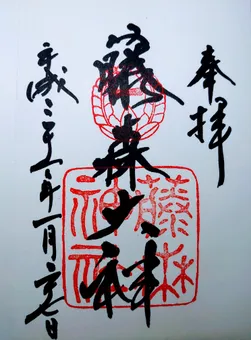 奉拝
藤森大神
平成二十年一月七日
藤森
神社